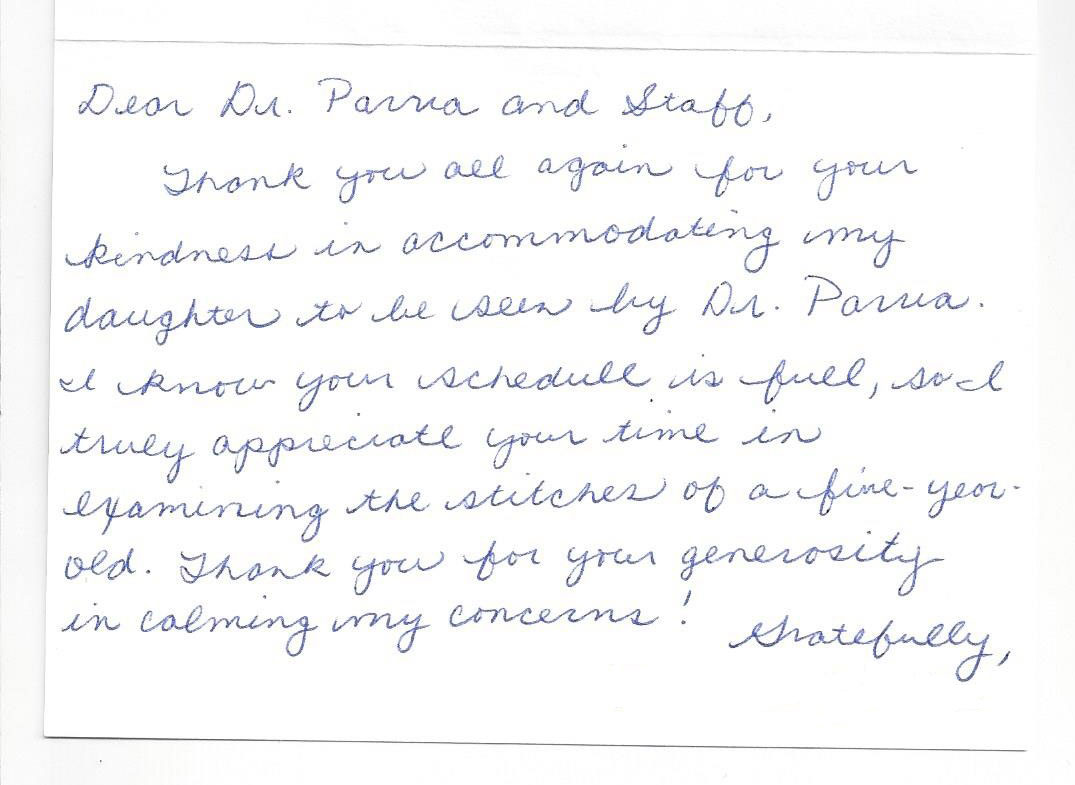 Dear Dr. Parra and Staff,
Thank you all again for your
kindness in accommodating my
daughter to be seen by Dr. Parra.
I know your schedule is full, so I
truly appreciate your time in
examining the stitches of a five-year-
old. Thank you for your generosity
in calming my concerns!
Gratefully,